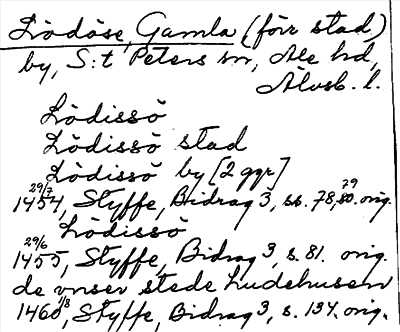 Lödöse, Gamla (förr stad)
by, S:t Peters sn, Ale hd,
Älvsb. l.
Lödissö
Lödissö stad
Lödissö by [2 ggr]
1454 29/7, Styffe, Bidrag 3, ss. 78, 79, 80. orig.
Lödissö
1455 29/6, Styffe, Bidrag 3, s. 81. orig.
de vnser stede Ludehusen
1460 1/3, Styffe, Bidrag 3, s. 134. orig.